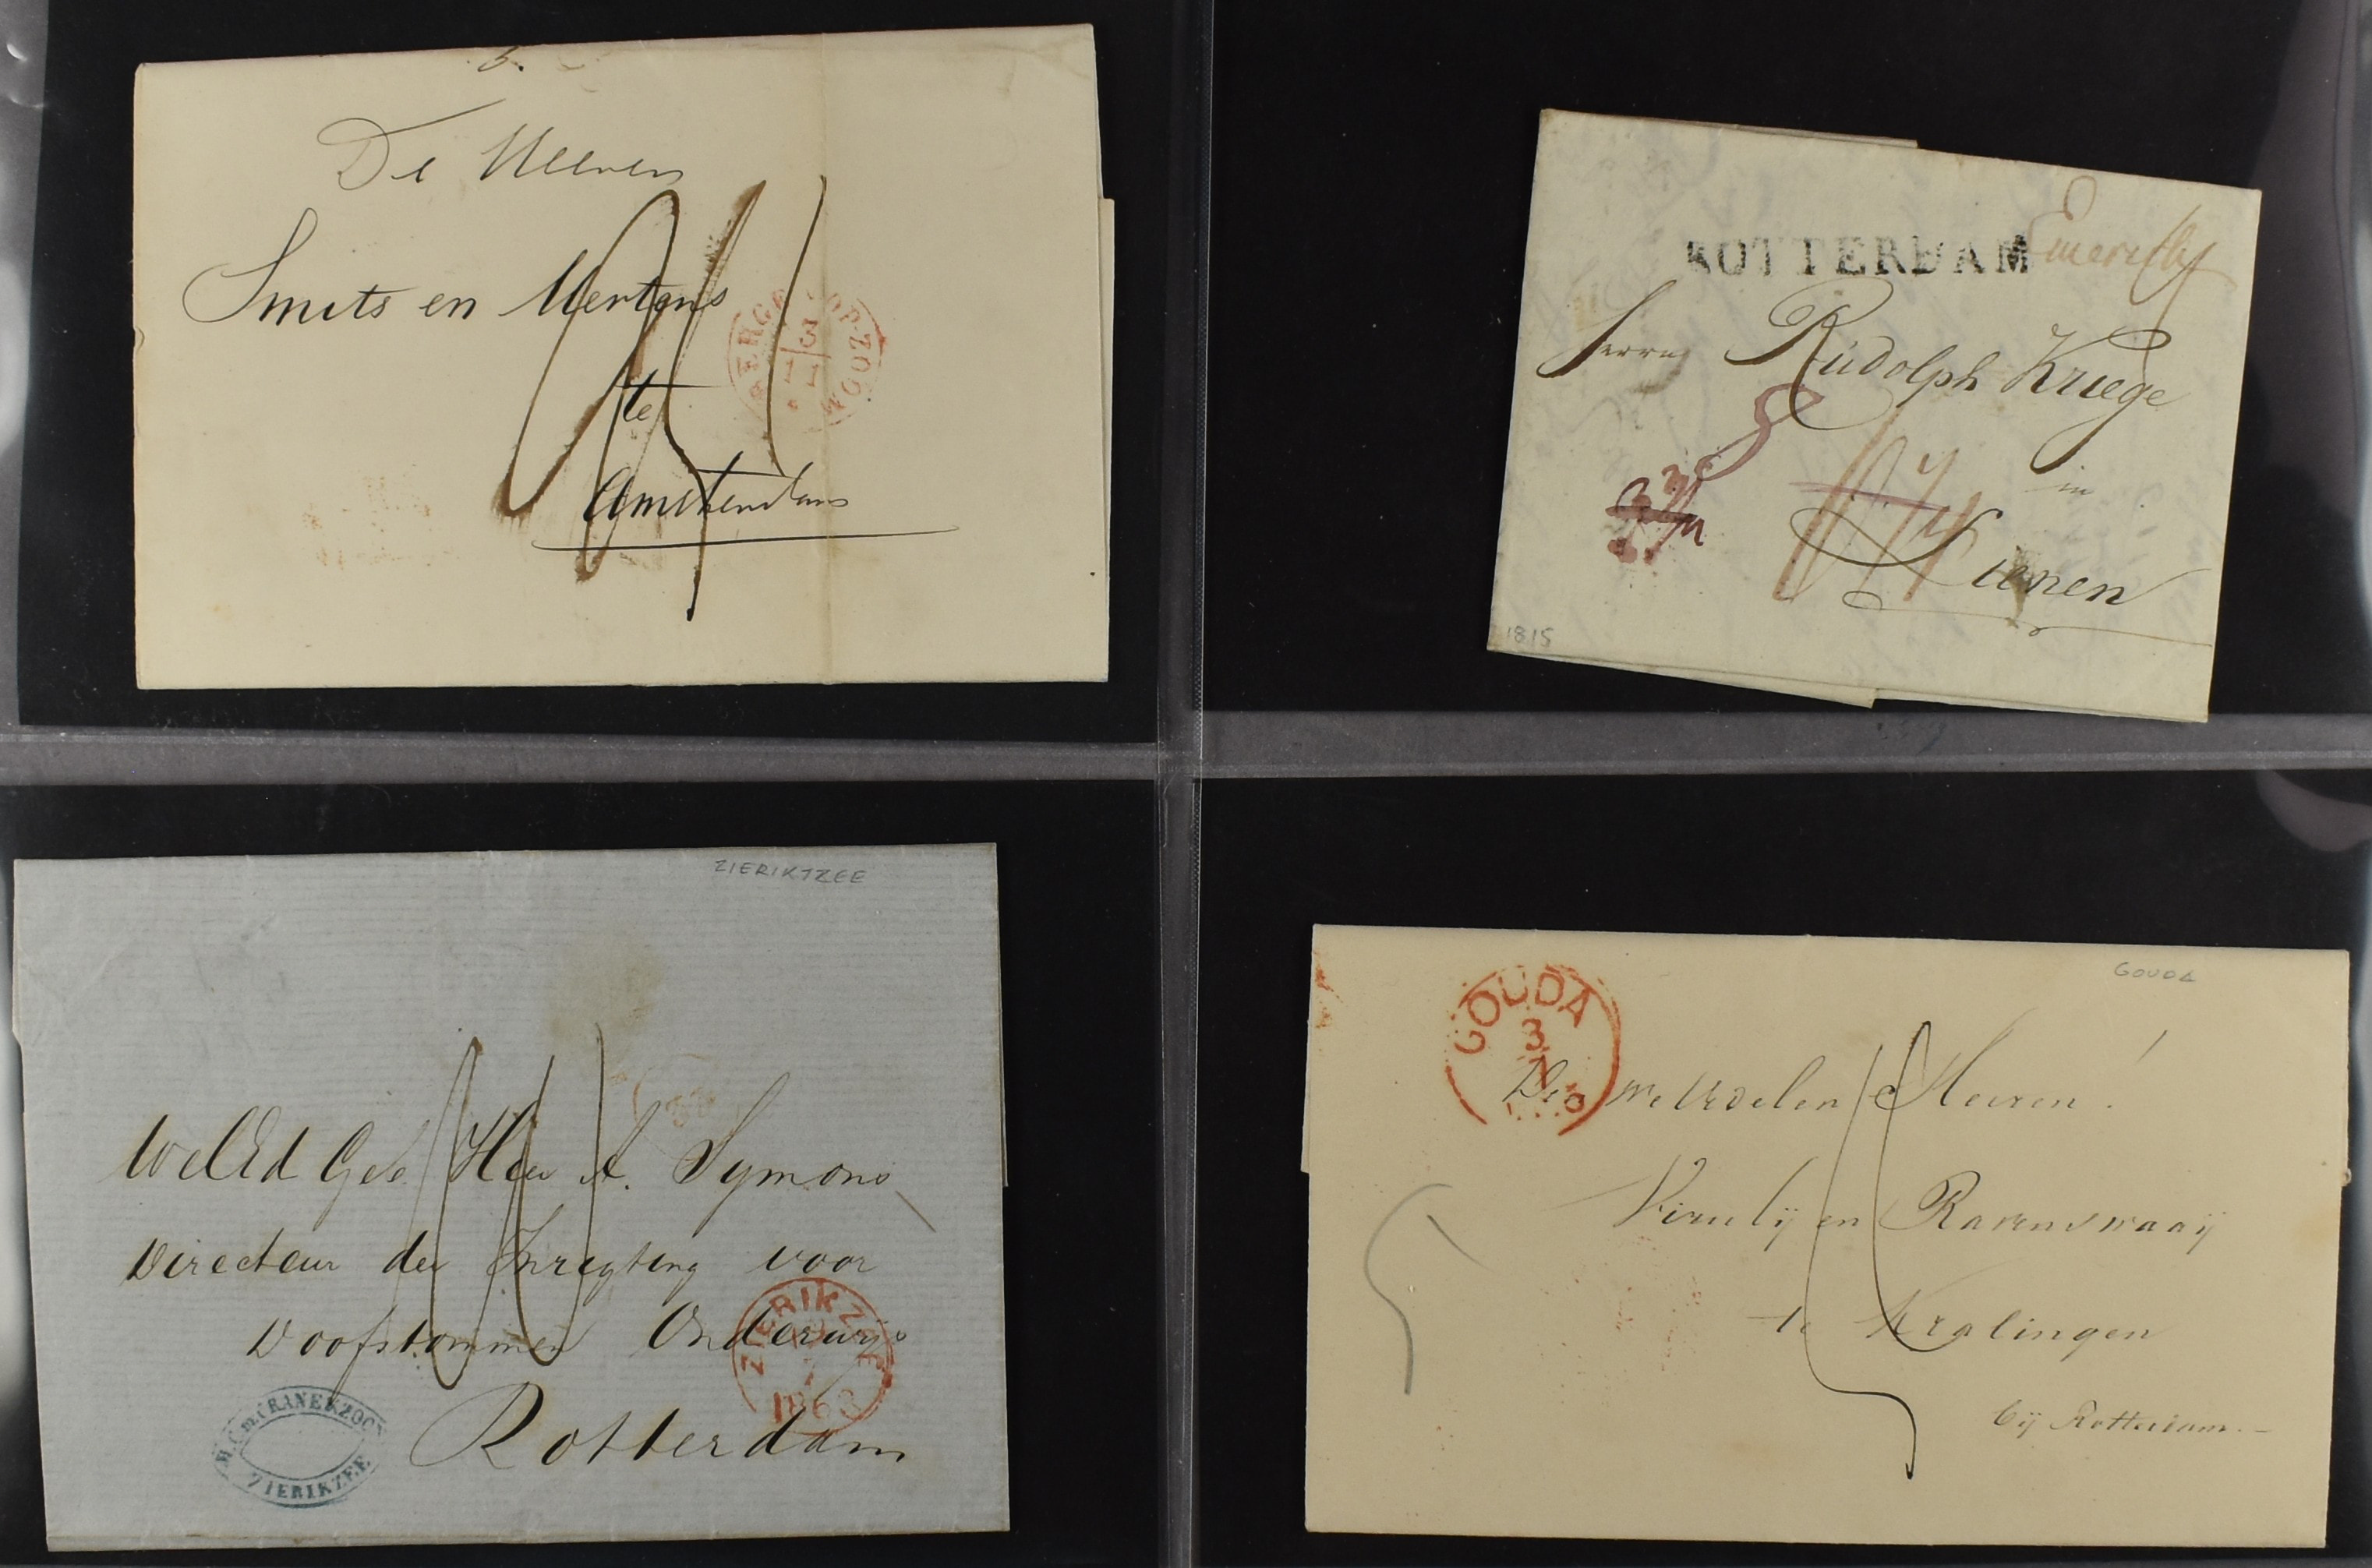 De Heeren
Smits en Mertens
te
Amsterdam
BERGEN OP ZOOM
3
11
ROTTERDAM
Emerich
Herrn Rudolph Kruege
in
Lienen
1815
ZIERIKTZEE
WelEd Geb Heer A. Symons
Directeur der Inrigting voor
Doofstommen Onderwijs
Rotterdam
ZIERIKZEE
1863
ZIERIKZEE
GOUDA
GOUDA
3
De WelEdelen Heeren!
Viruly en Ravenswaaij
te Kralingen
bij Rotterdam.